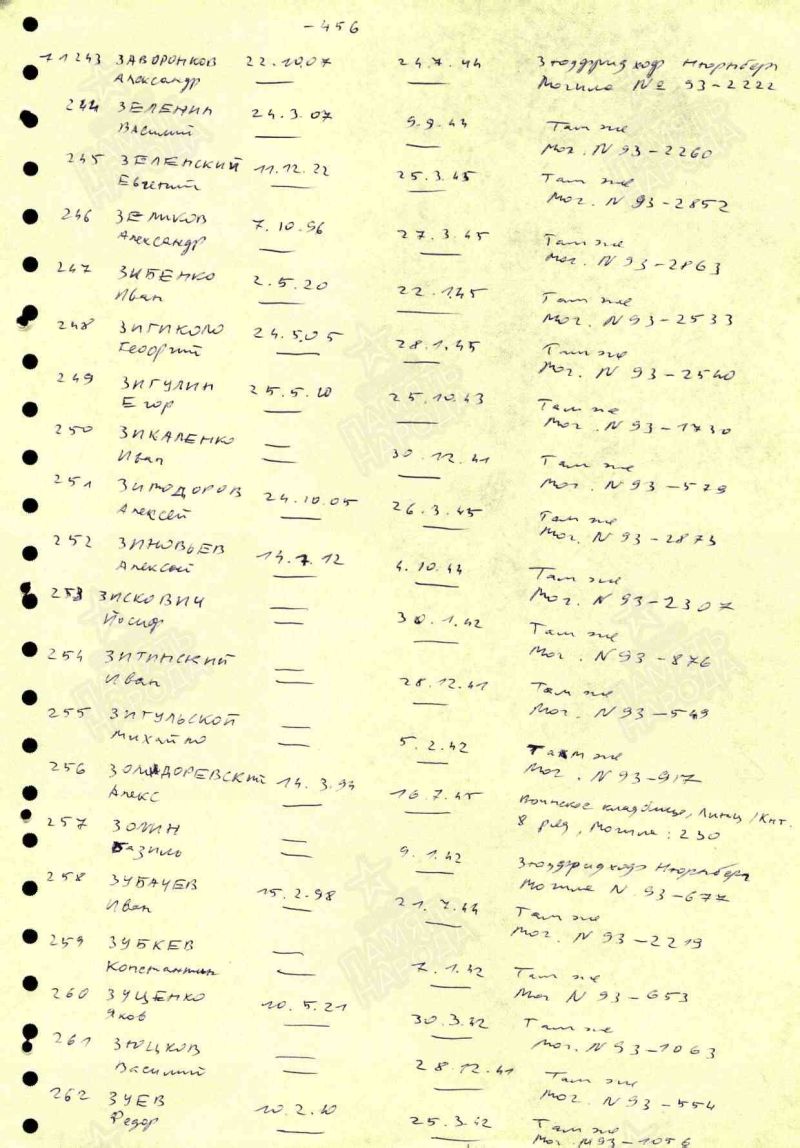 -456
11243 ЗАВОРОНКОВ 22.10.07 24.7.44 Зюдфридхоф Нюрнберг
Александр — — Могила № 93-2222
244 ЗЕЛЕНИН 24.3.07 9.9.44 Там же
Василий — — Мог. N 93-2260
245 ЗЕЛЕНСКИЙ 11.12.22 25.3.45 Там же
Евгений — — Мог. N 93-2852
246 ЗЕЛИКОВ 7.10.96 27.3.45 Там же
Александр — — Мог. N 93-2863
247 ЗИБЕНКО 2.5.20 22.1.45 Там же
Иван — — Мог. N 93-2533
248 ЗИГИКОЛО 24.5.05 28.1.45 Там же
Георгий — — Мог. N 93-2540
249 ЗИГУЛИН 25.5.10 25.10.43 Там же
Егор — — Мог. N 93-1730
250 ЗИКАЛЕНКО — 30.12.41 Там же
Иван — — Мог. N 93-579
251 ЗИМОДОРОВ 24.10.05 26.3.45 Там же
Алексей — — Мог. N 93-2873
252 ЗИНОВЬЕВ 14.7.12 4.10.44 Там же
Алексей — — Мог. N 93-2307
253 ЗИСКОВИЧ — 30.1.42 Там же
Йосиф — — Мог. N 93-876
254 ЗИТИНСКИЙ — 28.12.41 Там же
Иван — — Мог. N 93-549
255 ЗИГУЛЬСКОЙ — 5.2.42 Там же
Михайло — — Мог. N 93-917
256 14.3.94 16.7.45 Воинское кладбище, Линц /Кнт.
Алекс — — 8 ряд, могила: 230
257 ЗОЛИН — 9.1.42 Зюдфридхоф Нюрнберг
Базиль — — Могила N 93-677
258 ЗУБАЧЕВ 15.2.98 21.7.44 Там же
Иван — — Мог. N 93-2219
259 ЗУБКЕВ — 7.1.42 Там же
Константин — — Мог N 93-653
260 ЗУЦЕНКО 10.5.21 30.3.42 Там же
Яков — — Мог. N 93-1063
261 ЗЮЦКОВ — 28.12.41 Там же
Василий — — Мог. N 93-554
262 ЗУЕВ 10.2.10 25.3.42 Там же
Федор — — Мог. N93-1056
ПАМЯТЬ НАРОДА